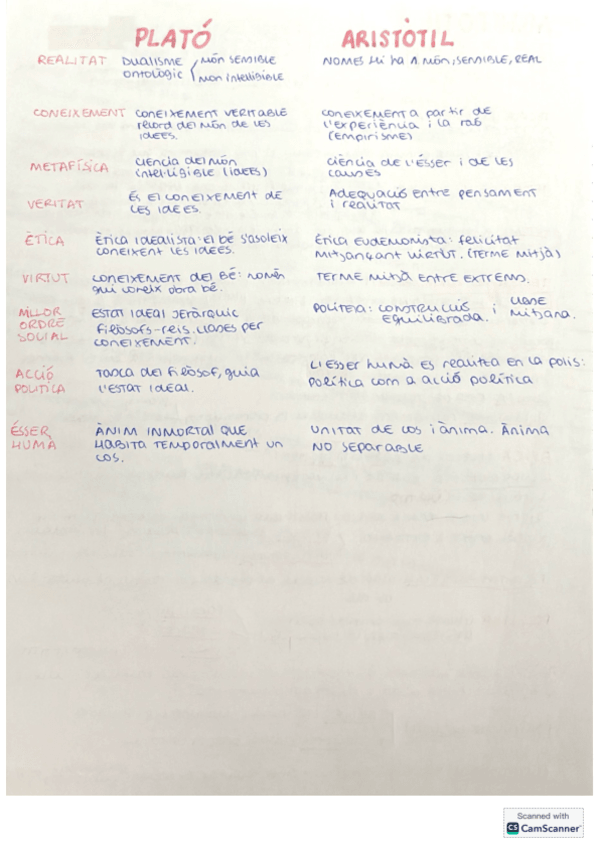 PLATÓ ARISTÒTIL
REALITAT Dualisme ontològic món sensible món intel·ligible NOMÉS hi ha 1 món, SENSIBLE, REAL
CONEIXEMENT CONEIXEMENT VERITABLE CONEIXEMENT a partir de
record del món de les l'experiència i la raó
idees. (empirisme)
METAFÍSICA ciència del món ciència de l'ésser i de les
intel·ligible (idees) causes
VERITAT És el coneixement de Adequació entre pensament
les idees. i realitat
ÈTICA Ètica idealista: el bé s'asoleix Ètica eudemonista: felicitat
coneixent les idees. mitjançant virtut. (terme mitjà)
VIRTUT coneixement del bé: només Terme mitjà entre extrems.
qui coneix obra bé.
MILLOR ORDRE SOCIAL Estat ideal jeràrquic Politeia: construcció equilibrada. i classe mitjana.
filòsofs-reis. classes per
coneixement.
ACCIÓ Tasca del filòsof, guia L'ésser humà es realitza en la polis:
POLÍTICA l'estat ideal. política com a acció política
ÉSSER ÀNIM INMORTAL QUE Unitat de cos i ànima. Ànima
HUMÀ HABITA TEMPORALMENT UN NO SEPARABLE
COS.
Scanned with
CS CamScanner